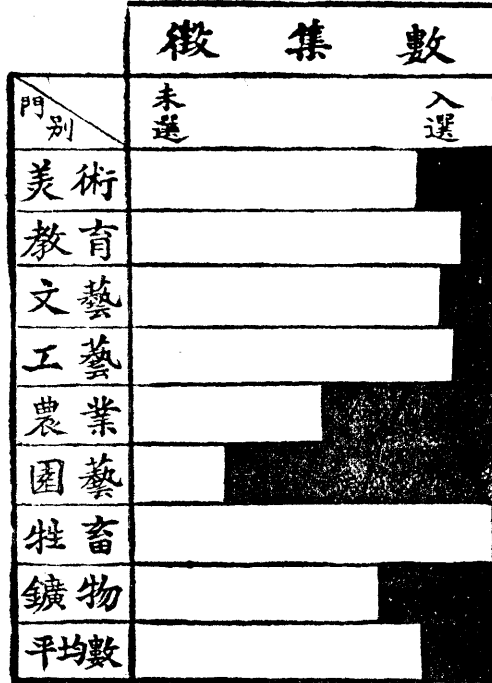 徵集數
門別
未選
入選
美術
教育
文藝
工藝
農業
園藝
牲畜
鑛物
平均數